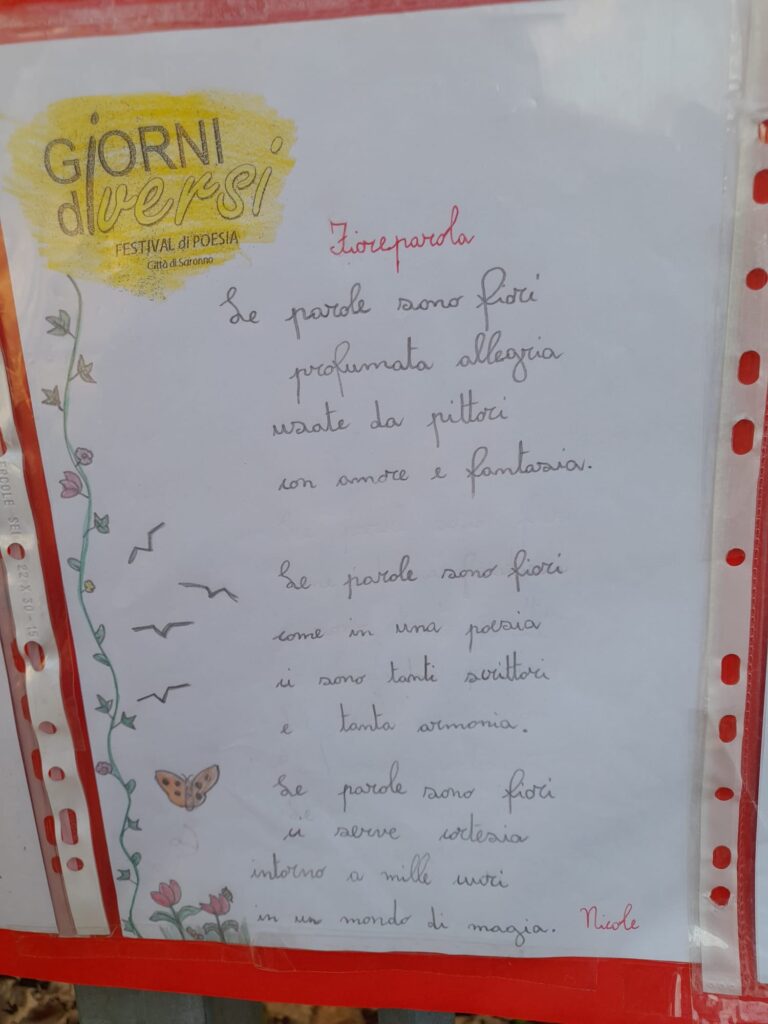 GiORNI
diversi
FESTIVAL di POESIA
Città di Saronno
Fioreparola
Le parole sono fiori
profumata allegria
usate da pittori
con amore e fantasia.
Le parole sono fiori
come in una poesia
ci sono tanti scrittori
e tanta armonia.
Le parole sono fiori
ci serve cortesia
intorno a mille cuori
in un mondo di magia.
Nicole
ERCOLE SEI
22 X 30-15